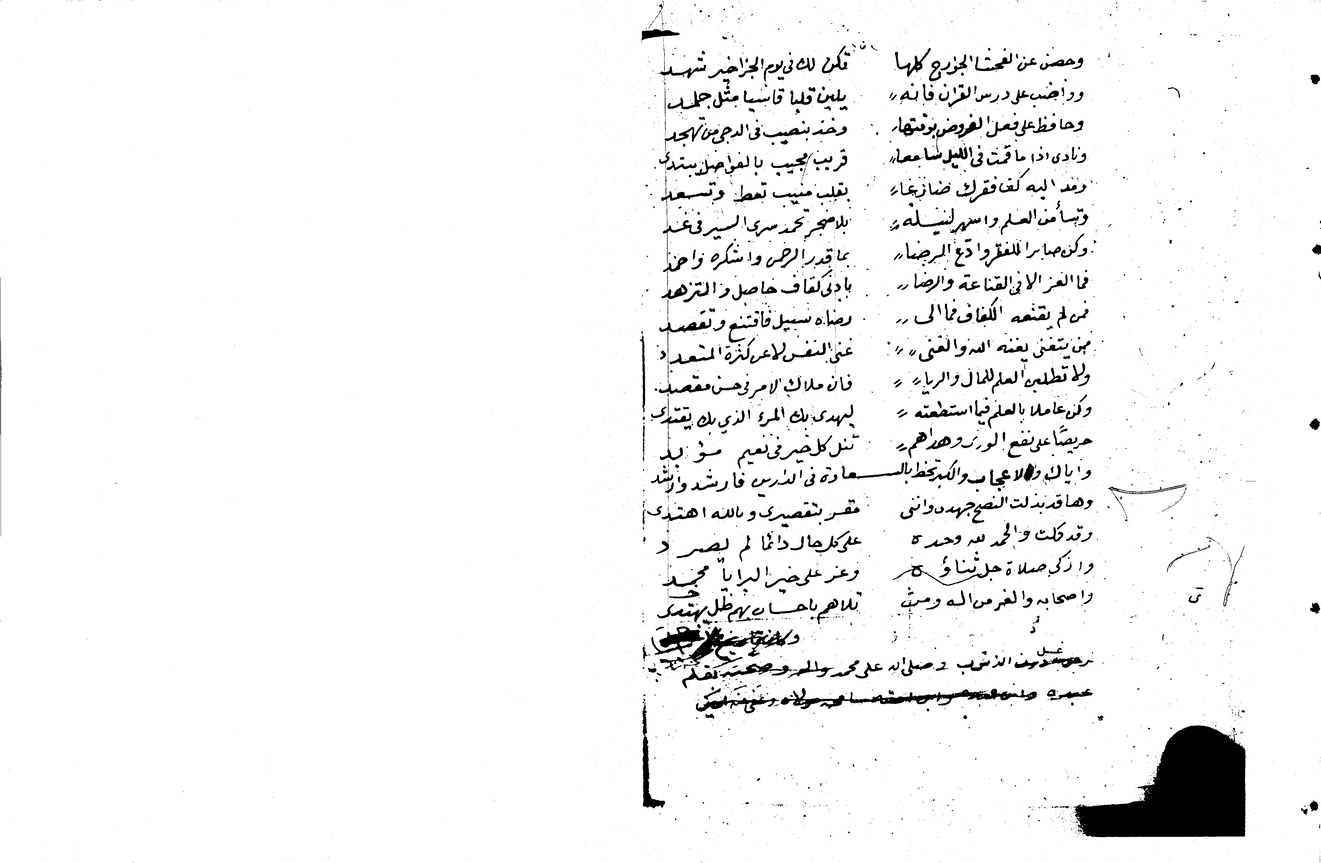 وحصن عن الفحشا الجوارح كلها فكن لك في يوم الجزا خير شهد
وواضب على درس القران فانه يلين قلبا قاسيا مثل جلمد
وحافظ على فعل الفروض بوقتها وخذ بنصيب في الدجى من تهجد
ونادى اذا ما قمت في الليل سامعا قريب مجيب بالفواضل يبتدى
ومد اليه كف فقرك ضارعا بقلب منيب تعط وتسعد
من العلم واسهر لنيله بلا ضجر تحمد سرى السير في غد
وكن صابرا للفقر وادّع الرضا بما قدر الرحمن واشكره واحمد
فما العز الا في القناعة والرضا بادنى كفاف حاصل والتزهد
فمن لم يقنعه الكفاف فما الى رضاه سبيل فاقتنع وتقصد
فمن يتغنى يغنه الله والغنى غنى النفس لا عن كثرة المتعدد
ولا تطلبن العلم للمال والريا فان ملاك الامر في حسن مقصد
وكن عاملا بالعلم فيما استطعته ليهدى بك المرء الذي بك يقتدى
حريصًا على نفع الورى وهداهم تنل كل خير في نعيم مؤبد
واياك والاعجاب والكبر تحظ بالسعادة في الدارين فارشد وارشد
وها قد بذلت النصح جهدى وانني مقر بتقصيرى وبالله اهتدى
وقد كملت والحمد لله وحده على كل حال دائما لم يصرد
وازكى صلاة جل ثناؤه وعز على خير البرايا محمد
واصحابه والغر من اله ومن تلاهم باحسان بهم ظل يهتدى
الذنوب وصلى الله على محمد واله وصحبه بقلم
عبده